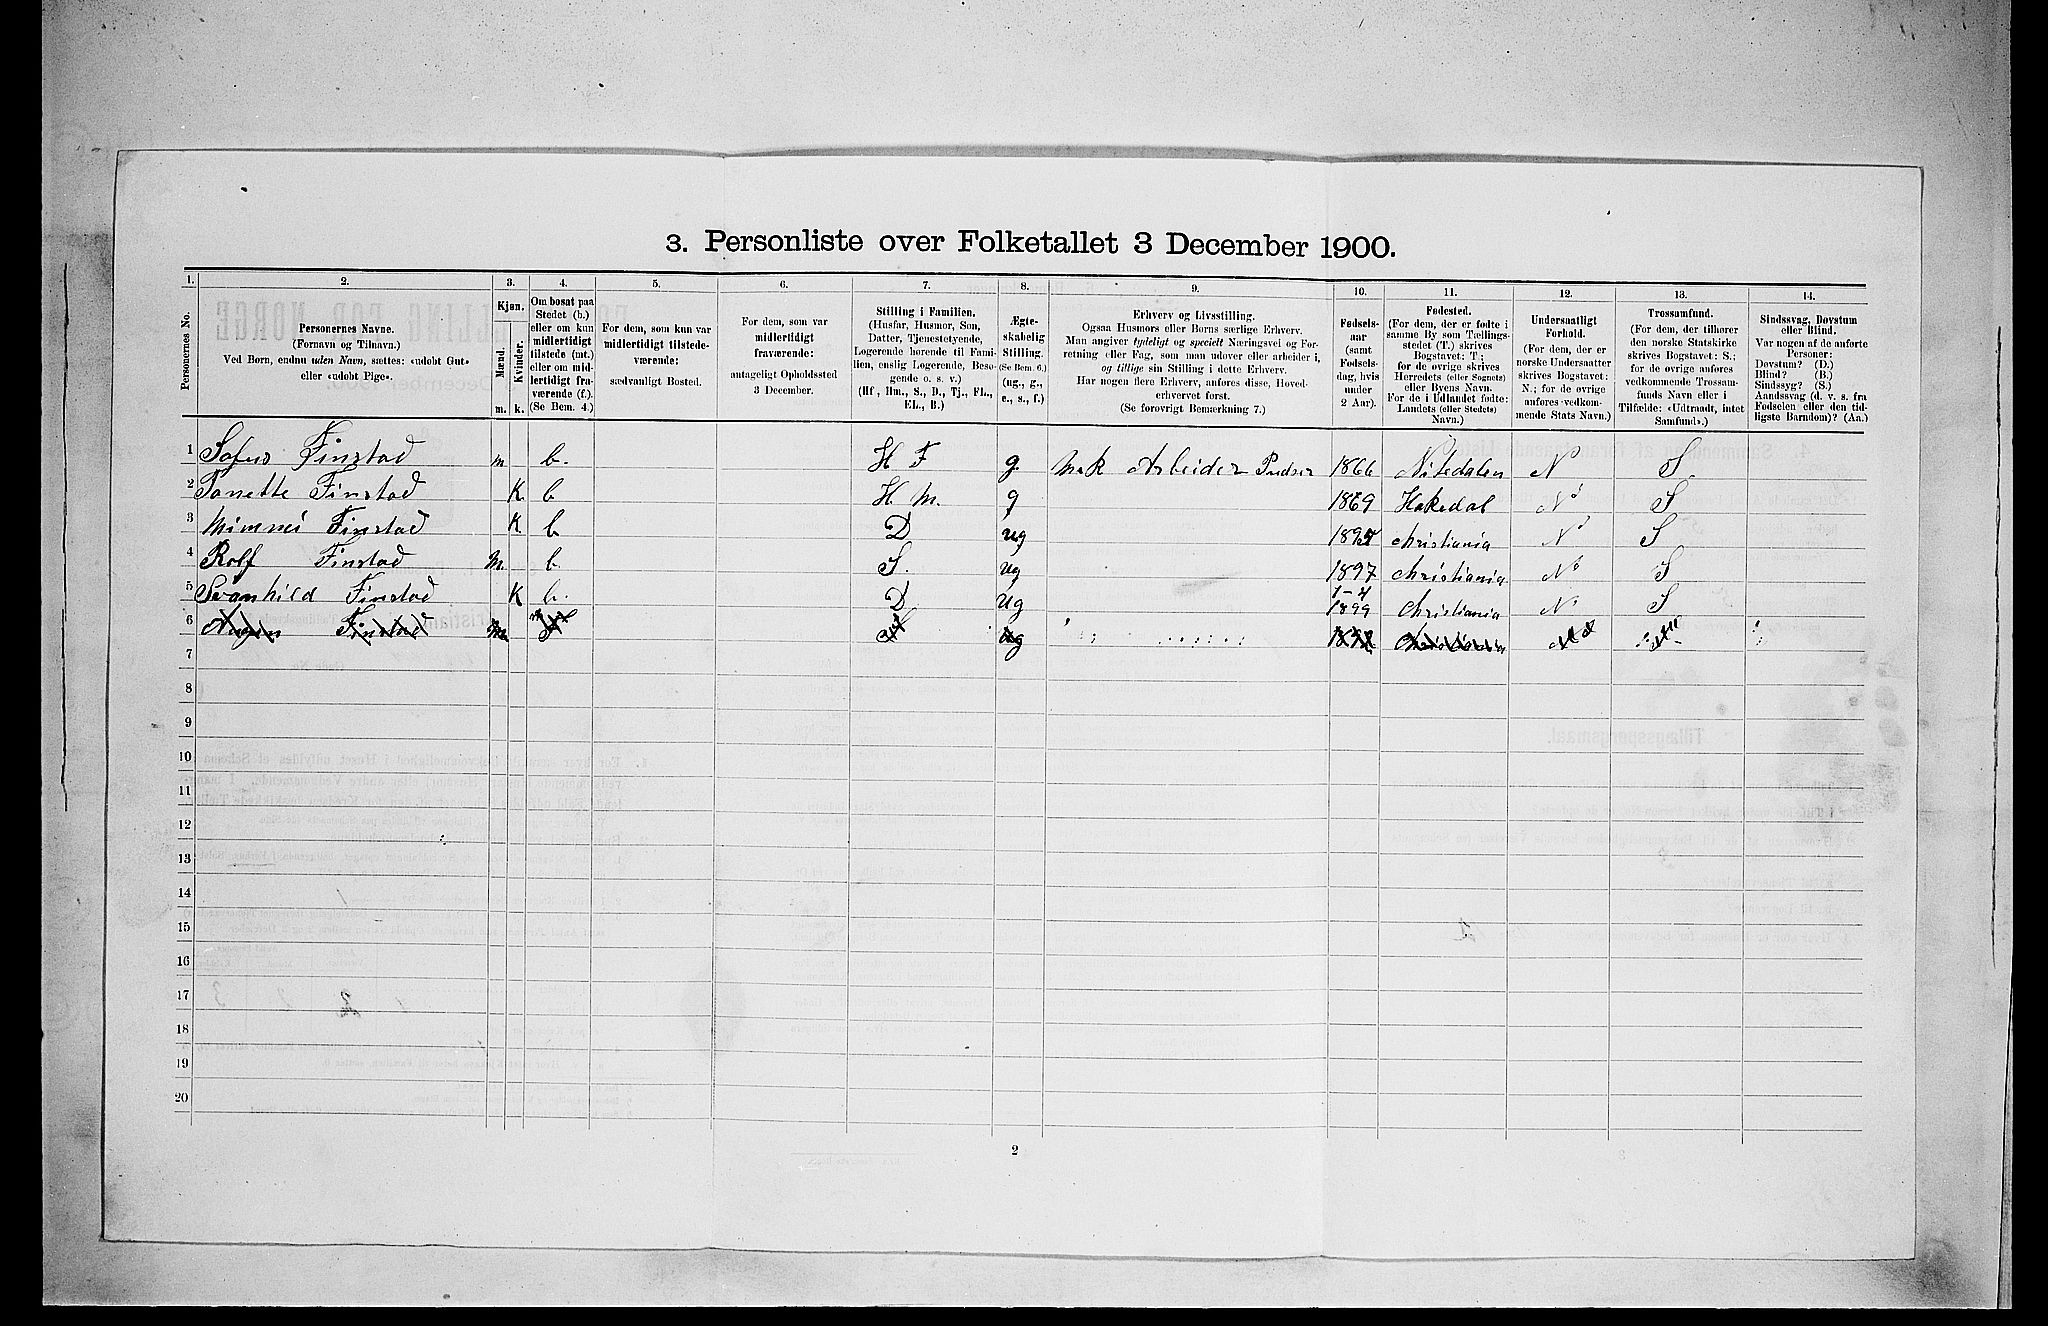 3. Personliste over Folketallet 3 December 1900.
1. 2. 3. 4. 5. 6. 7. 8. 9. 10. 11. 12. 13. 14.
Personernes No.
Personernes Navne.
(Fornavn og Tilnavn.)
Ved Børn, endnu uden Navn, sættes: «udøbt Gut»
eller «udøbt Pige».
Kjøn.
Mænd.
Kvinder.
m. k.
Om bosat paa
Stedet (b.)
eller om kun
midlertidigt
tilstede (mt.)
eller om mid-
lertidigt fra-
værende (f.).
(Se Bem. 4.)
For dem, som kun var
midlertidigt tilstede-
værende:
sædvanligt Bosted.
For dem, som var
midlertidigt
fraværende:
antageligt Opholdssted
3 December.
Stilling i Familien.
(Husfar, Husmor, Søn,
Datter, Tjenestetyende,
Logerende hørende til Fami-
lien, enslig Logerende, Besø-
gende o. s. v.)
(Hf., Hm., S., D., Tj., FL.,
EL., B.)
Ægte-
skabelig
Stilling.
(Se Bem. 6.)
(ug., g.,
e., s., f.)
Erhverv og Livsstilling.
Ogsaa Husmors eller Børns særlige Erhverv.
Man angiver tydeligt og specielt Næringsvei og For-
retning eller Fag, som man udøver eller arbeider i,
og tillige sin Stilling i dette Erhverv.
Har nogen flere Erhverv, anføres disse, Hoved-
erhvervet først.
(Se forøvrigt Bemærkning 7.)
Fødsels-
aar
(samt
Fødsels-
dag, hvis
under
2 Aar).
Fødested.
(For dem, der er fødte i
samme By som Tællings-
stedet (T.) skrives
Bogstavet: T;
for de øvrige skrives
Herredets (eller Sognets)
eller Byens Navn.
For de i Udlandet fødte:
Landets (eller Stedets)
Navn.)
Undersaatligt
Forhold.
(For dem, der er
norske Undersaatter
skrives Bogstavet:
N.; for de øvrige
anføres vedkom-
mende Stats Navn.)
Trossamfund.
(For dem, der tilhører
den norske Statskirke
skrives Bogstavet: S.;
for de øvrige anføres
vedkommende Trossam-
funds Navn eller i
Tilfælde: «Udtraadt, intet
Samfund».)
Sindssvag, Døvstum
eller Blind.
Var nogen af de anførte
Personer:
Døvstum? (D.)
Blind? (B.)
Sindssyg? (S.)
Aandssvag (d. v. s. fra
Fødselen eller den tid-
ligste Barndom)? (Aa.)
1 Sofus Finstad m b. H F g. Mek Arbeider Pudser 1866 Nitedalen N S
2 Tanette Finstad K b H m. g 1869 Hakedal N S
3 Mimmi Finstad K b D ug Christiania N S
4 Rolf Finstad m. b. S. ug 1897 Christiania N S
5 Svanhild Finstad K b. D ug 1-4 1899 Christiania N S
6 Finstad m ug Christiania
7
8
9
10
11
12
13
14
15
16
17
18
19
20
2